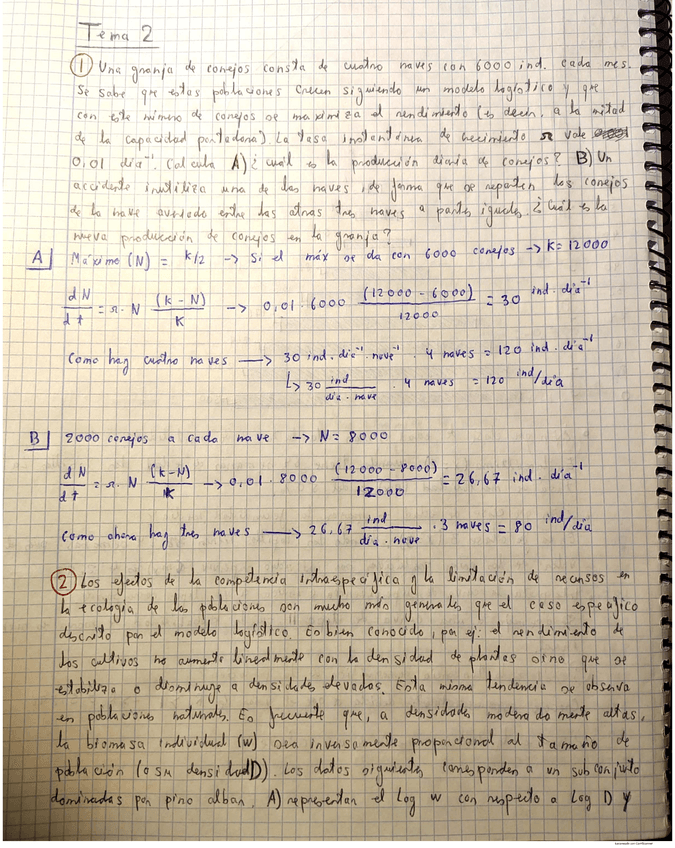 Tema 2
① Una granja de conejos consta de cuatro naves con 6000 ind. cada mes.
Se sabe que estas poblaciones crecen siguiendo un modelo logístico y que
con este número de conejos se maximiza el rendimiento (es decir, a la mitad
de la capacidad portadora). La tasa instantánea de crecimiento r vale
0,01 día⁻¹. Calcula A) ¿cuál es la producción diaria de conejos? B) Un
accidente inutiliza una de las naves, de forma que se reparten los conejos
de la nave averiada entre las otras tres naves a partes iguales. ¿Cuál es la
nueva producción de conejos en la granja?
A Máximo (N) = K/2 -> Si el máx se da con 6000 conejos -> K = 12000
dN/dt = r · N (K-N)/K -> 0,01 · 6000 (12000 - 6000)/12000 = 30 ind · día⁻¹
Como hay cuatro naves -> 30 ind · día⁻¹ · nave⁻¹ · 4 naves = 120 ind · día⁻¹
↳ 30 ind/día · nave · 4 naves = 120 ind/día
B 2000 conejos a cada nave -> N = 8000
dN/dt = r · N (K-N)/K -> 0,01 · 8000 (12000 - 8000)/12000 = 26,67 ind · día⁻¹
Como ahora hay tres naves -> 26,67 ind/día · nave · 3 naves = 80 ind/día
② Los efectos de la competencia intraespecífica y la limitación de recursos en
la ecología de las poblaciones son mucho más generales que el caso específico
descrito por el modelo logístico. Es bien conocido, por ej: el rendimiento de
los cultivos no aumenta linealmente con la densidad de plantas sino que se
estabiliza o disminuye a densidades elevadas. Esta misma tendencia se observa
en poblaciones naturales. Es frecuente que, a densidades moderadamente altas,
la biomasa individual (w) sea inversamente proporcional al tamaño de
población (o su densidad D). Los datos siguientes corresponden a un subconjunto
dominadas por pino albar. A) representar el Log w con respecto a Log D y